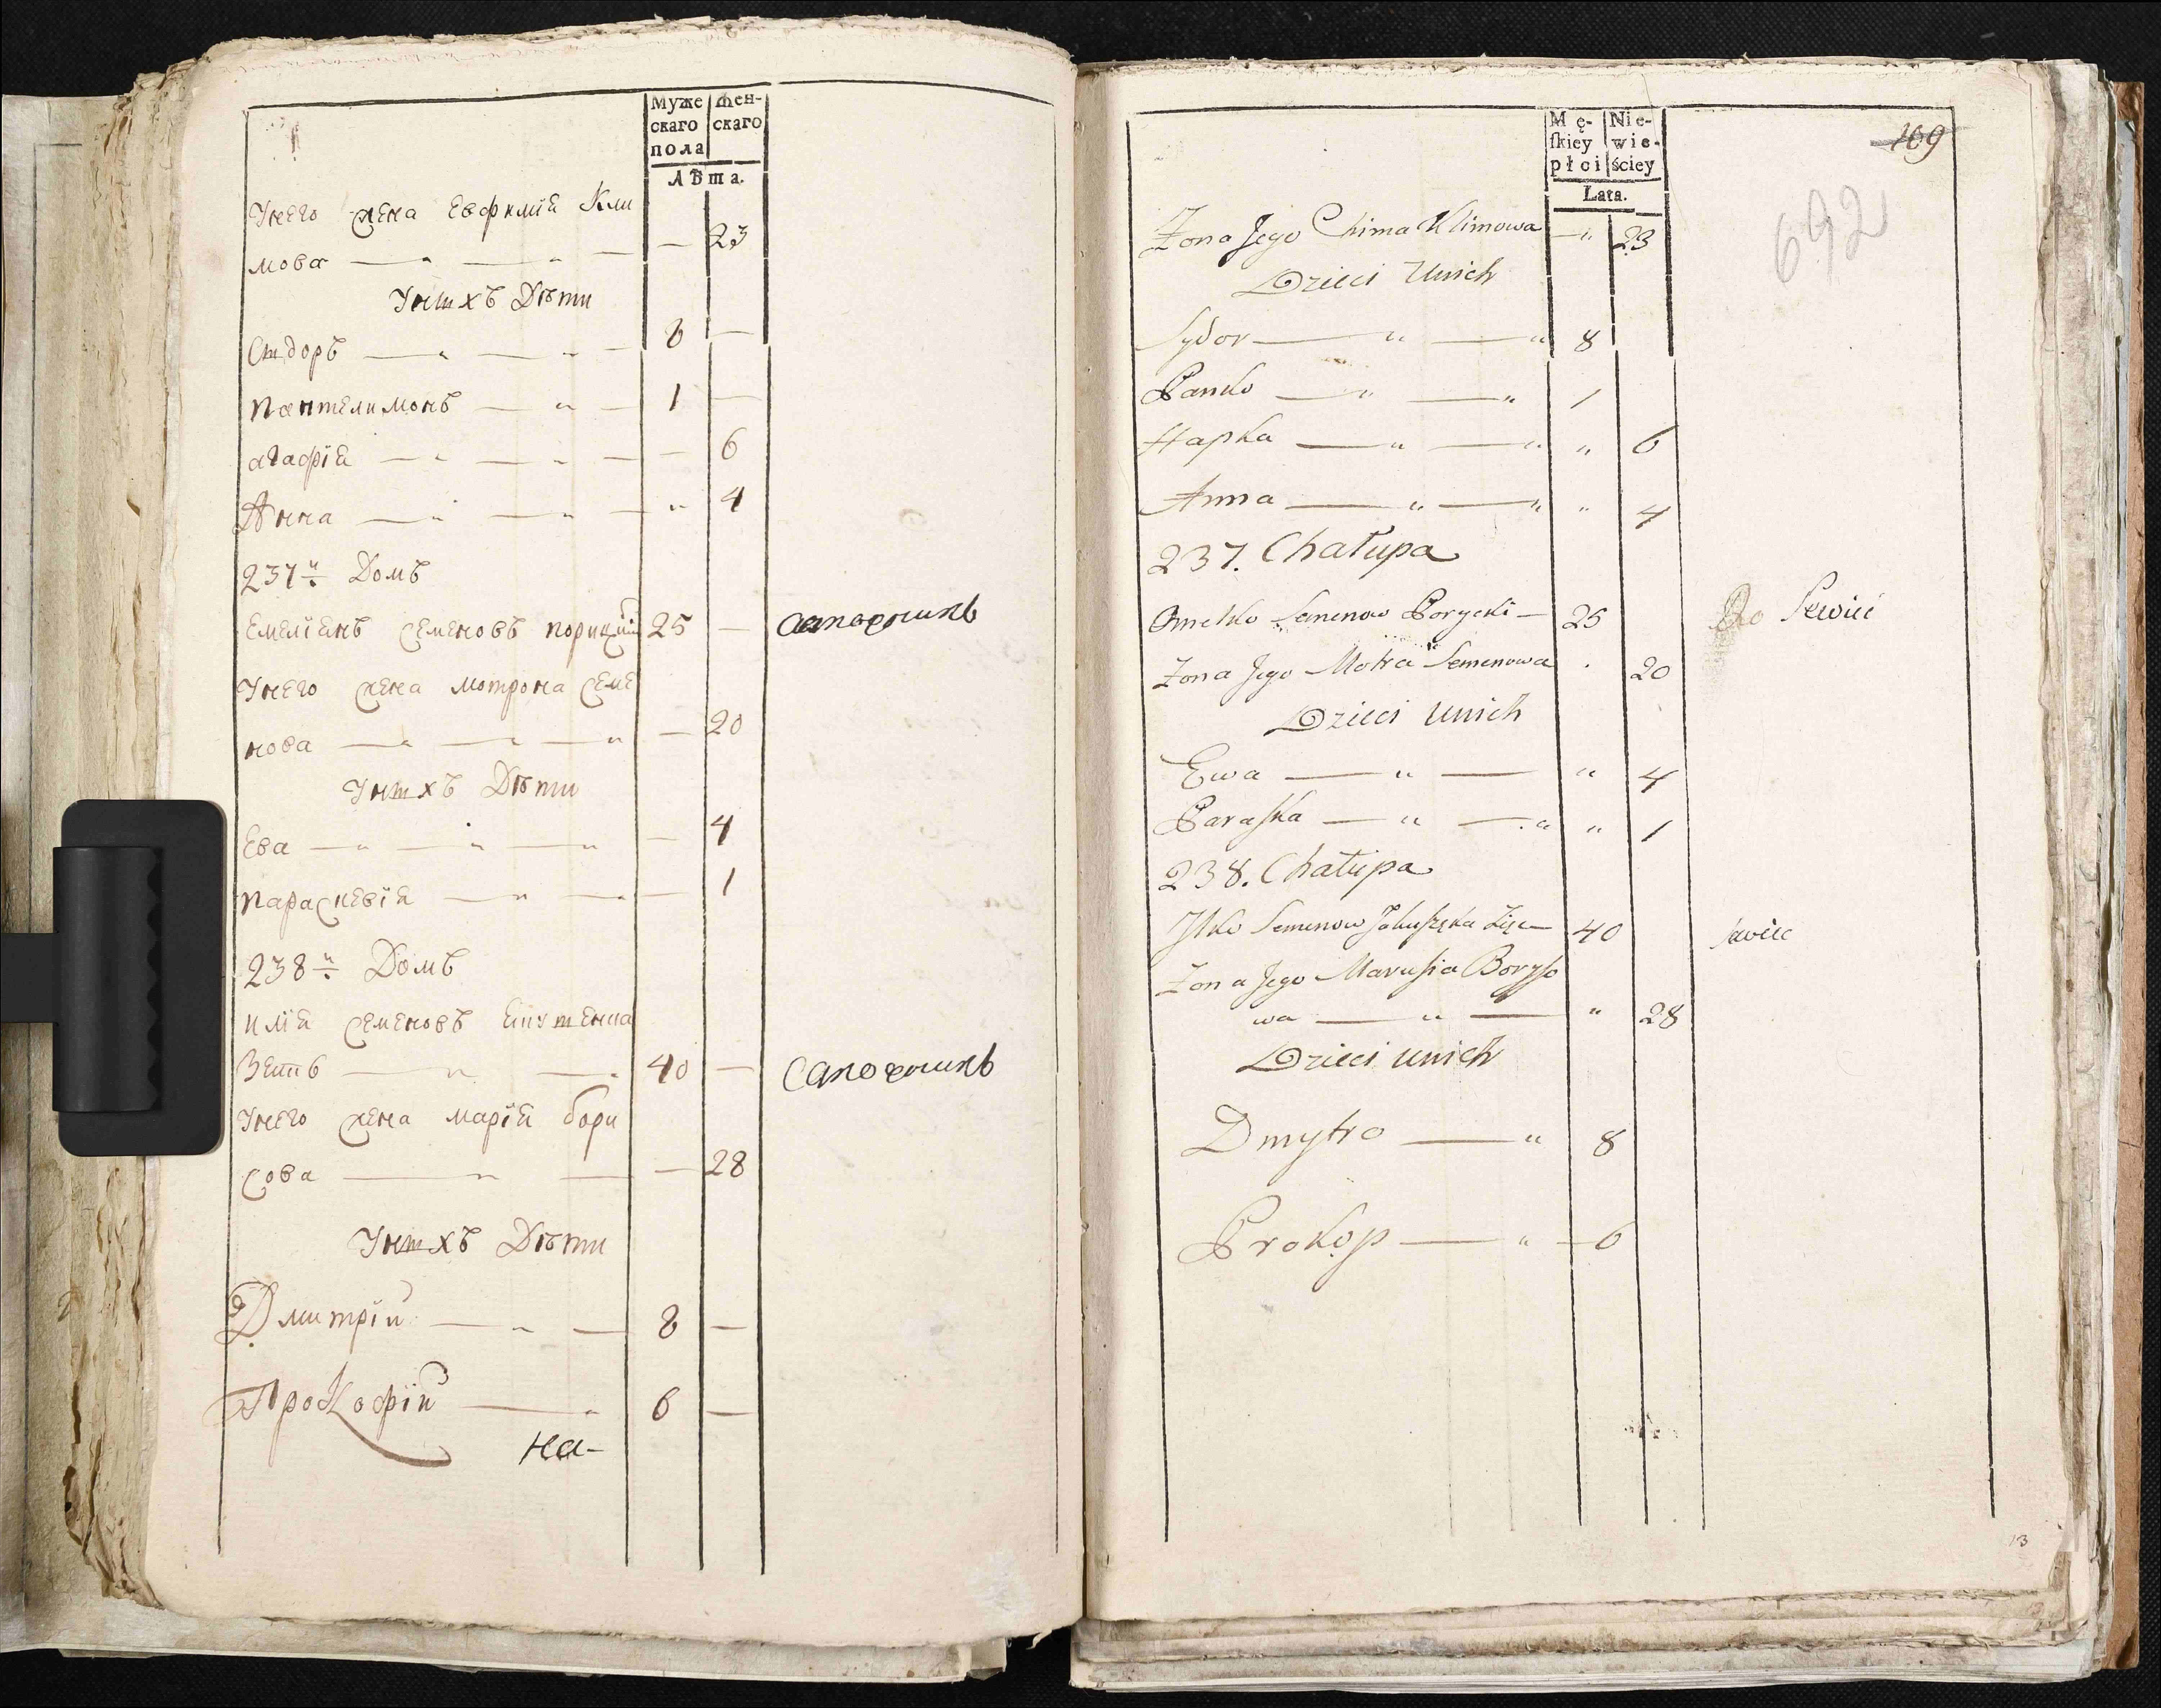 Муже
скаго
пола
Жен-
скаго
Лѣта.
Унего жена Евфимїя Кли
мова — " — " — — 23
Унихъ Дѣти
Сидоръ — " — " — 8 —
Пантелимонъ — " — 1 —
агафїя — " — " — — 6
Анна — " — " — " 4
237й Домъ
Емелїянъ Семеновъ порицкїй 25 — сапожникъ
Унего жена мотрона Семе
нова — " — " — " — 20
Унихъ Дѣти
Ева — " — " — " — 4
параскевїя — " — " — 1
238й Домъ
илїя Семеновъ
Зять — " — " 40 — Сапожникъ
Унего жена марїя бори
сова — " — — 28
Унихъ Дѣти
Дмитрїй — " — 8 —
Прокофїй — " 6 —
на-
Mę-
ſkiey
płci
Nie-
wie-
ściey
Lata.
109
692
Zona Jego Chima Klimowa — " 23
Dzieci Unich
Sydor — " — " 8
Panko — " — " 1
Hapka — " — " " 6
Anna — " — " " 4
237. Chałupa
Omelko Semenow Porycki — 25 Szwiec
Zona Jego Motra Semenowa . 20
Dzieci Unich
Ewa — " — " 4
Paraſka — " — " " 1
238. Chałupa
Ilko Semenow Zięc — 40 szwiec
Zona Jego Maruſia Boryſo
wa — " — " 28
Dzieci Unich
Dmytro — " 8
Prokop — " — 6
13